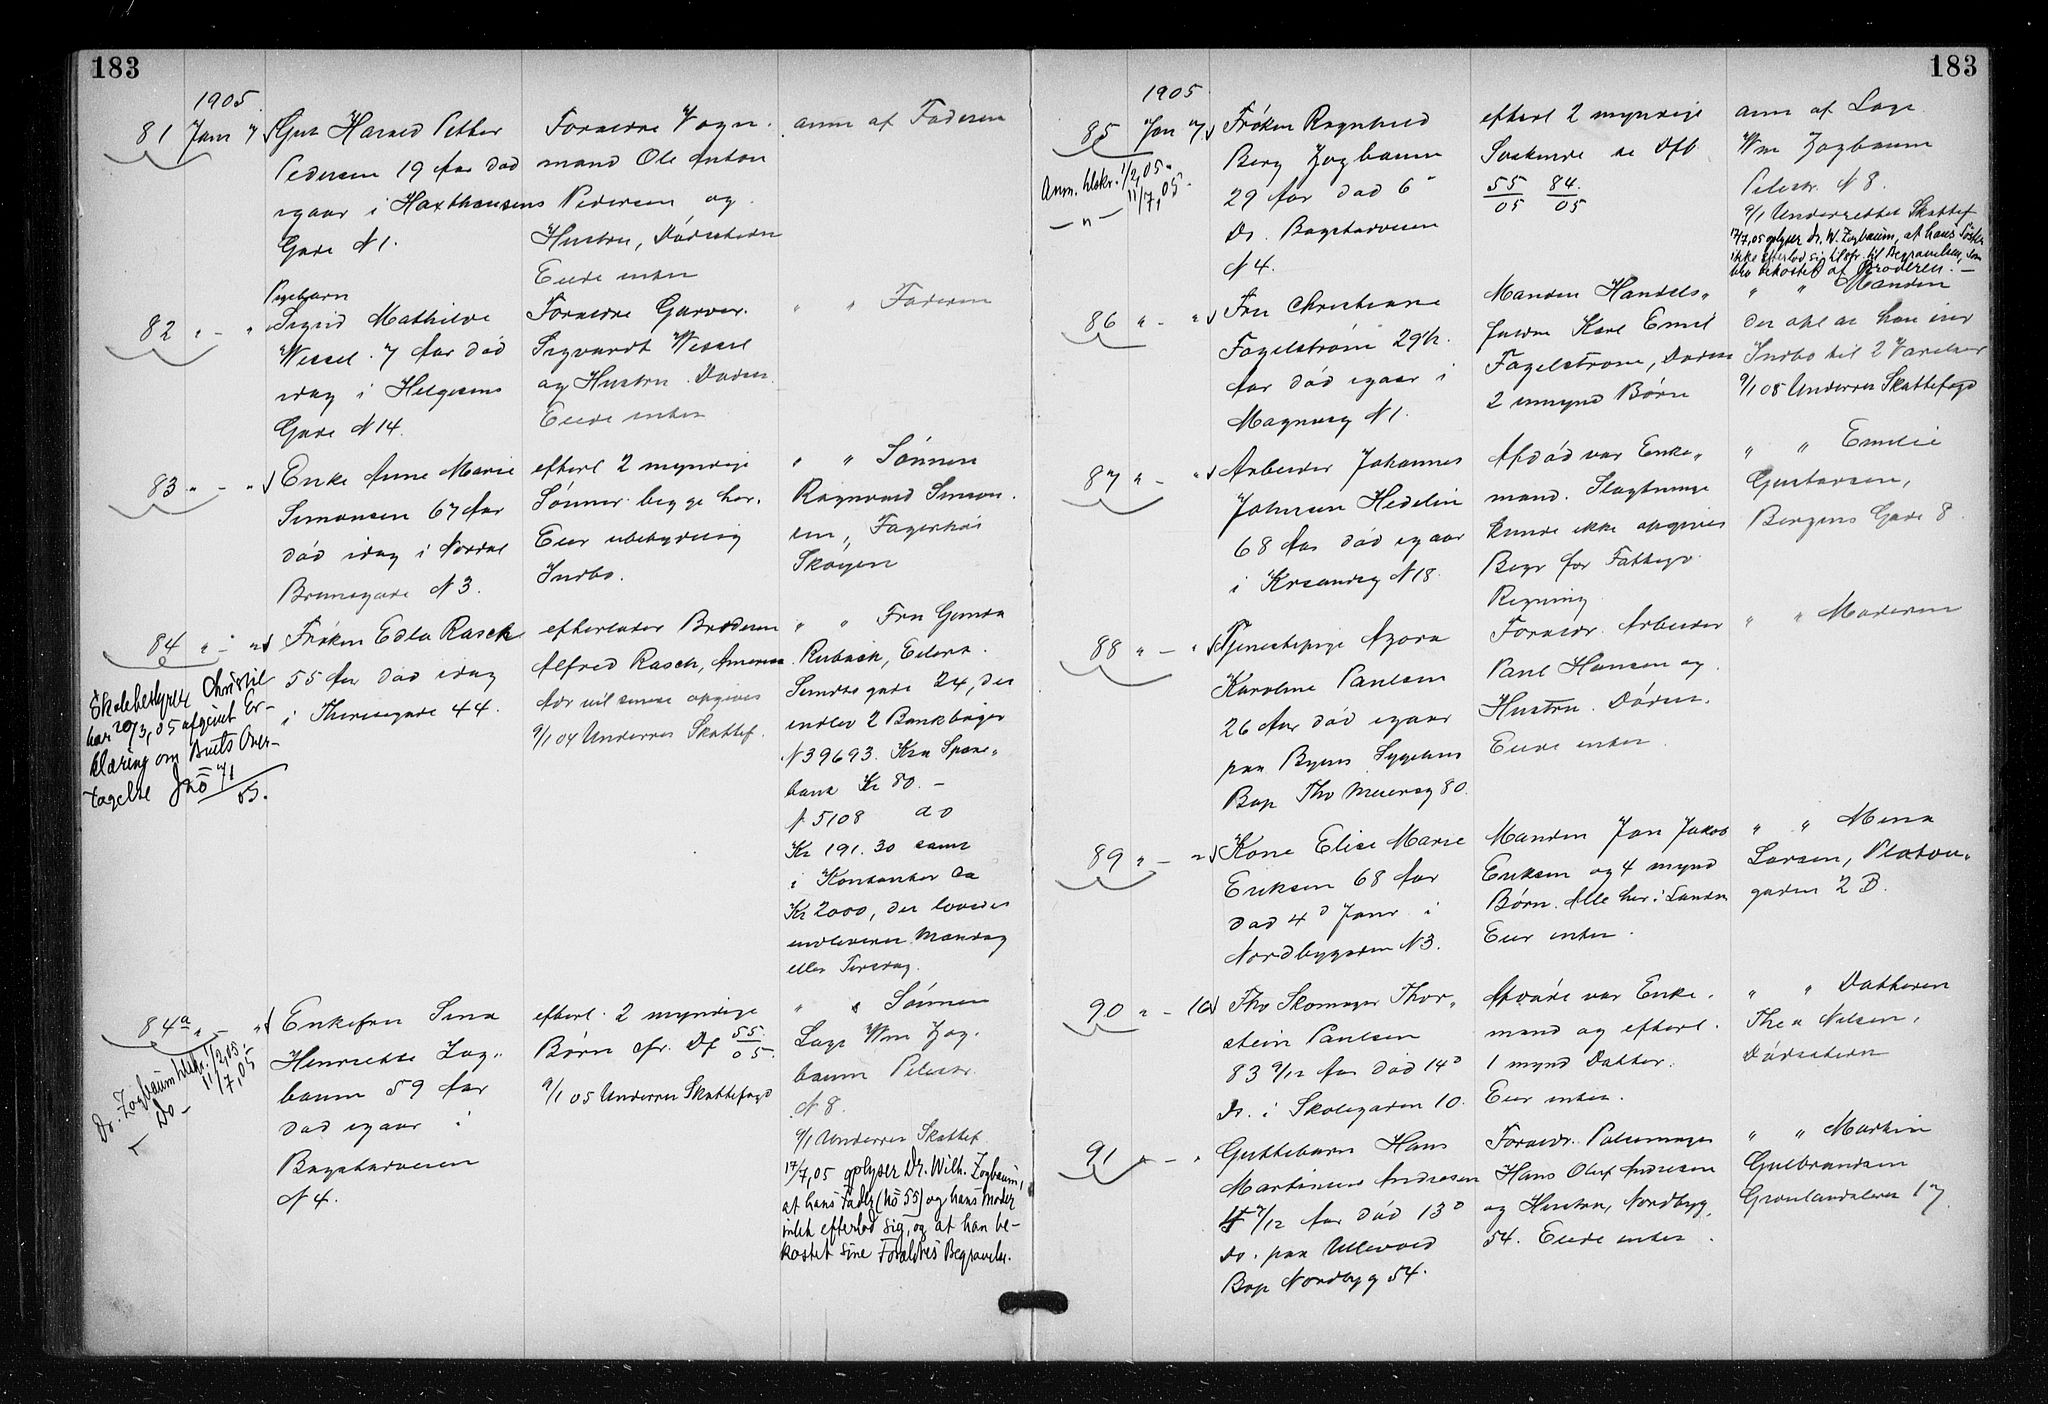 183
1905
81 Janr 7 Gut Harald Petter
Pedersen 19 Aar død
igaar i Haxthausens
Gade N 1.
Forældre Vogn-
mand Ole Anton
Pedersen og
Hustru, Dødsstedn
Eiede inten
anm af Faderen
82 " - " Pigebarn
Sigrid Mathilde
Wessel 7 Aar død
idag i Helgesens
Gade N 14.
Forældre Garver
Sigvardt Wessel
og Hustru. Dødsst.
Eiede inten
" " Faderen
83 " - " Enke Anne Marie
Simonsen 67 Aar
død idag i Nordal
Brunsgade N 3.
efterl 2 myndige
Sønner begge her.
Eier ubetydelig
Indbo.
" " Sønnen
Ragnvald Simon-
sen, Fagerhøi
Skøyen
84 " - " Frøken Edla Rasch
55 Aar død idag
i Theresegade 44.
efterlader Broderen
Alfred Rasch, Amerika
Adr vil senere opgives
9/1 04 Underret Skattef.
" " Fru Gunda
Rubach, Eilert
Sundts gade 24, der
indlev 2 Bankbøger
N 39693. Kra Spare-
bank Kr 80. -
N 5108 do
Kr 191.30 samt
i Kontanter ca
Kr 2000, der lovedes
indleveret Mandag
eller Tirsdag.
Skolebestyrer
har 20/3,05 afgivet Er-
klæring om Boets Over-
tagelse Jno 71/05.
84a " - " Enkefru Lina
Henriette Zog-
baum 59 Aar
død igaar i
Bogstadveien
N 4.
efterl. 2 myndige
Børn cfr. Df 55/05.
9/1 05 Underret Skattefogd
" " Sønnen
Læge Wm Zog-
baum Pilestr.
N 8.
9/1 Underret Skattef
17/7,05 oplyser Dr. Wilh. Zogbaum,
at hans Fader (No 55) og hans Moder
intet efterlod sig, og at han be-
kostet sine Forældres Begravelse.
Dr. Zogbaum tilskr. 1/2,05.
- Do - 11/7,05
183
1905
85 Jan 7 Frøken Ragnhild
Berg Zogbaum
29 Aar død 6
Ds. Bogstadveien
N 4.
efterl 2 myndige
Søskende se Dfb
55/05 84/05
anm af Læge
Wm Zogbaum
Pilestr. N 8.
9/1 Underrettet Skattef
17/7,05 oplyser Dr. W. Zogbaum, at hans Søster
ikke efterlod sig til Begravelsen, som
blev bekostet af Broderen. -
Anm. tilskr. 1/2,05.
- " - 11/7,05.
86 " - " Fru Christiane
Fagelstrøm 29½
Aar død igaar i
Magnusg N 1.
Manden Handels-
Karl Emil
Fagelstrøm, Dødsst
2 umynd Børn
" " Manden
der opl at han eier
Indbo til 2 Værelser
9/1 05 Underret Skattefogd
87 " - " Arbeider Johannes
Johnsen Hedelin
68 Aar død igaar
i Krsandsg N 18.
Afdød var Enke-
mand. Slægtninge
kunde ikke opgives
Begr for Fattigv
Regning
" " Emilie
Gustavsen,
Bergens Gade 8
88 " - " Tjenestepige Agora
Karoline Paulsen
26 Aar død igaar
paa Byens Sygehus
Bop Thv Meiersg 80.
Forældr. Arbeider
Paul Hansen og
Hustru. Dødsst.
Eiede inten
" " Moderen
89 " - " Kone Elise Marie
Eriksen 68 Aar
død 4d Janr i
Nordbygaden N 3.
Manden Jan Jakob
Eriksen og 4 mynd
Børn. Alle her i Landet
Eier inten.
" " Mina
Larsen, Platou-
gaden 2 B.
90 " - 16 Fhv Skomager Thor-
stein Paulsen
83 9/12 Aar død 14d
Ds. i Skolegaden 10.
Afdøde var Enke-
mand og efterl.
1 mynd Datter.
Eier inten.
" " Datteren
Thea Nilsen,
Dødsstedn
91 " - " Guttebarn Hans
Martinius Andresen
7/12 Aar død 13d
Ds. paa Ullevold
Bop Nordbyg 54.
Forældr. Pølsemager
Hans Oluf Andresen
og Hustru, Nordbyg.
54. Eiede inten.
" " Martin
Gulbrandsen
Grønlandsleret 17.